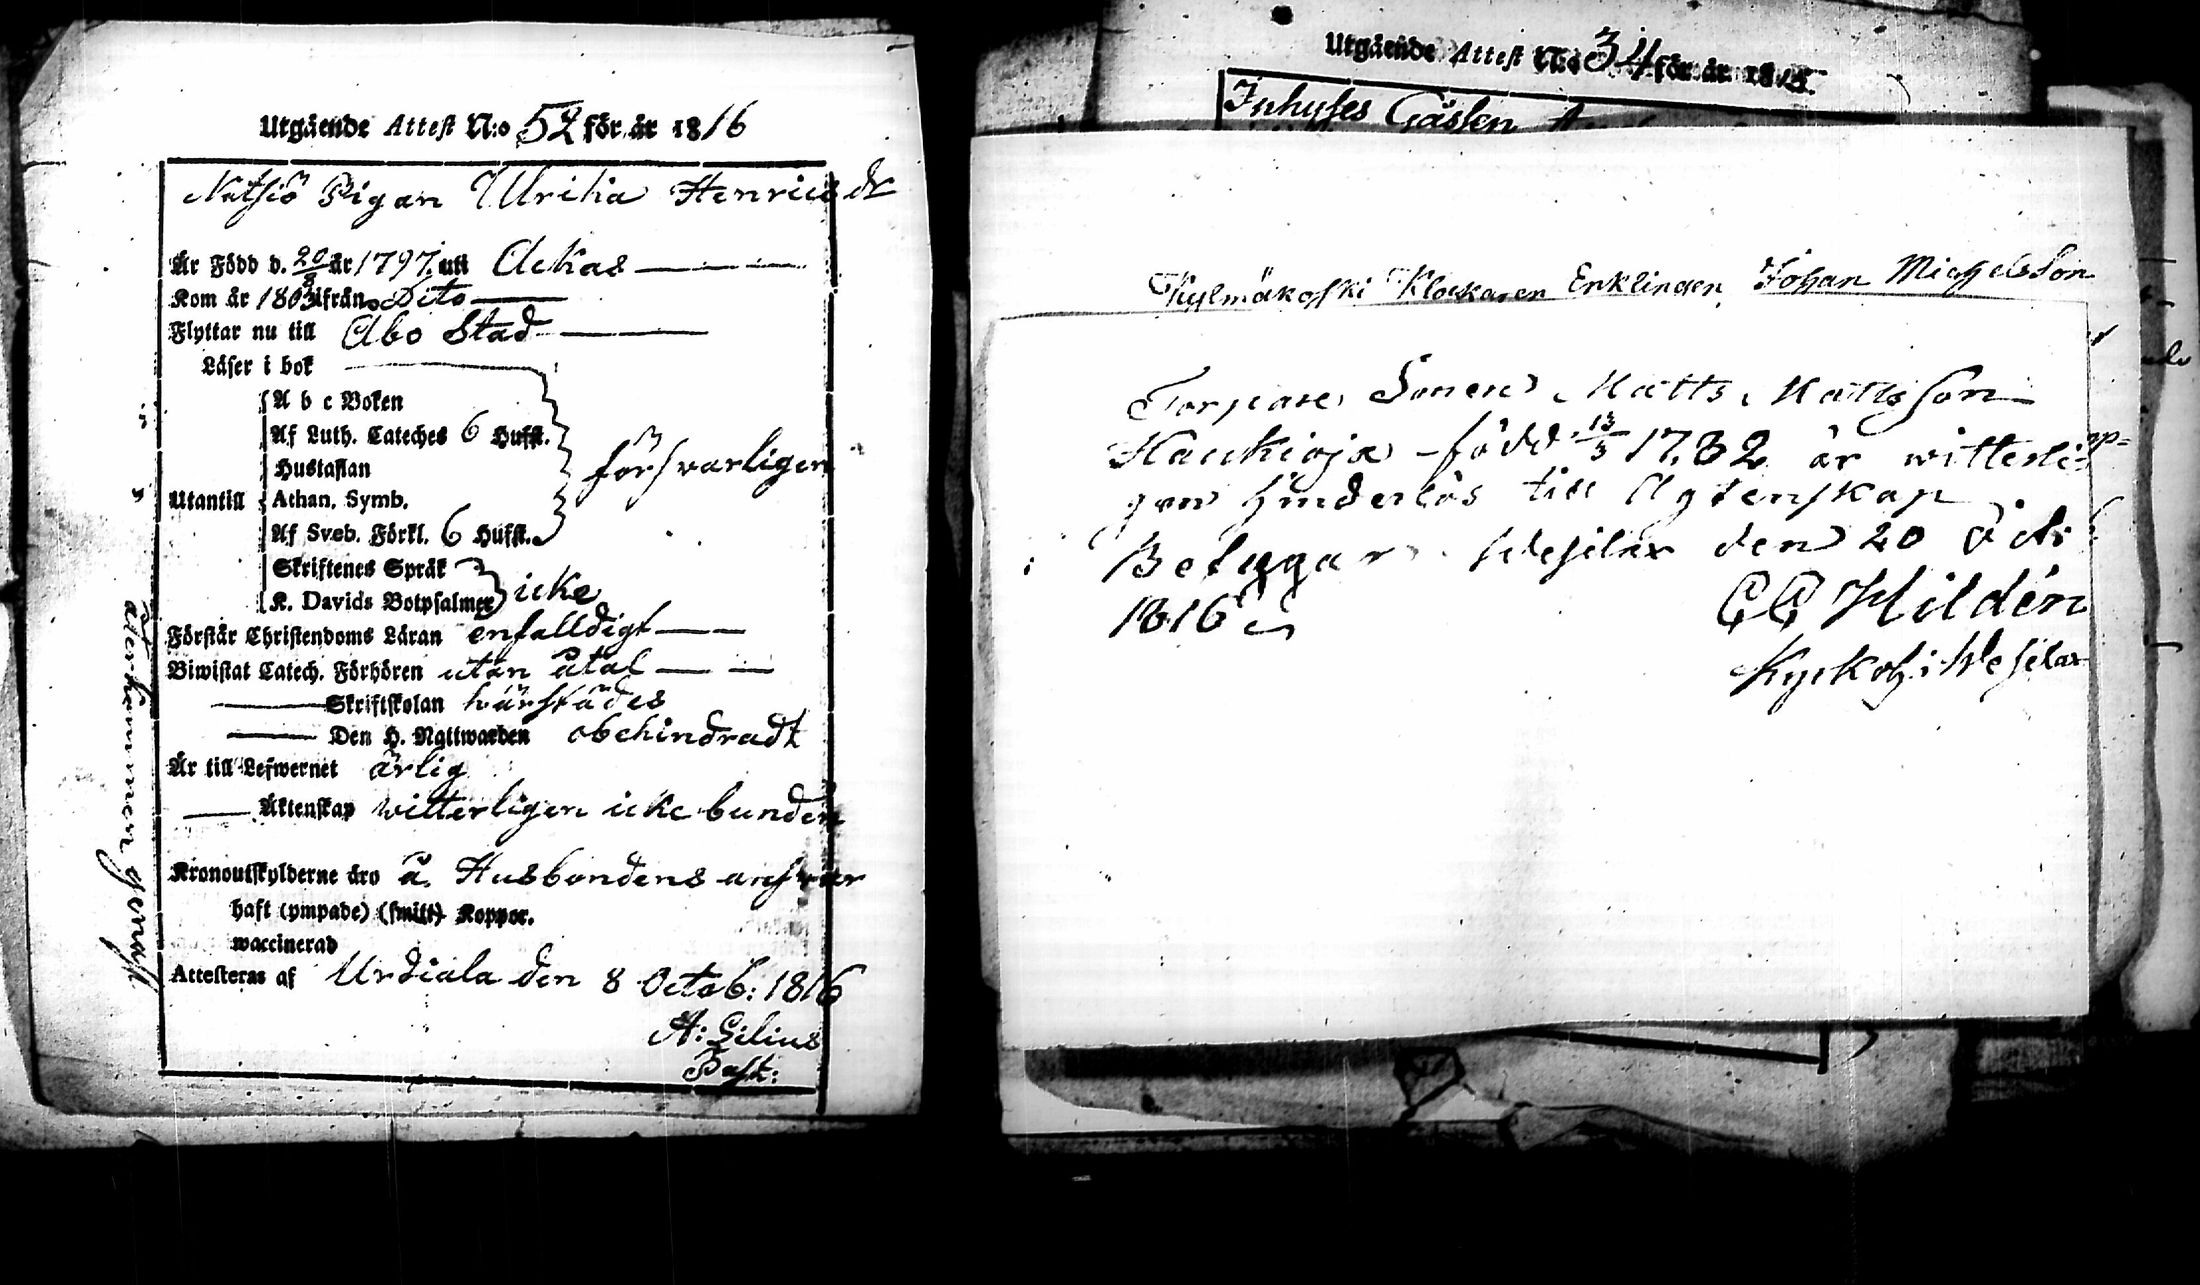 Utgående Attest N:o 52 för år 1816
Nutsiö Pigan Ulrika Henricsdr
Är Född d. 20/8 år 1797. uti Ackas
Kom år 1803 ifrån Dito
Flyttar nu till Åbo Stad
Läser i bok
A b c Boken
Af Luth. Cateches 6 Hufst.
Hustaflan
försvarligen
Utantill Athan. Symb.
Af Sveb. Förkl. 6 Hufst.
Skriftenes Språk
K. Davids Botpsalmer icke
Förstår Christendoms Läran enfalldigt
Biwistat Catech. Förhören utan åtal
Skriftskolan härstädes
Den H. Nattwarden obehindradt
Är till Lefwernet ärlig
Äktenskap witterligen icke bunden
Kronoutskylderne äro å Husbondens ansvar
haft (ympade) (smitt) Koppor.
waccinerad
Attesteras af Urdiala den 8 Octob: 1816
A: Gilius
Past:
återkommer genast
Utgående Attest N:o 34 för år 1815.
Inhyses Gåssen
Kylmäkoski Klockaren Enklingen Johan Michelsson
Torpare Sonen Matts Mattsson
Haukioja född 13/3 1782 är witterli=
gen hinderlös till Ägtenskap
Betygar Wesilax den 20 Octr
1816
CC Hildén
Kyrkoh. i Wesilax